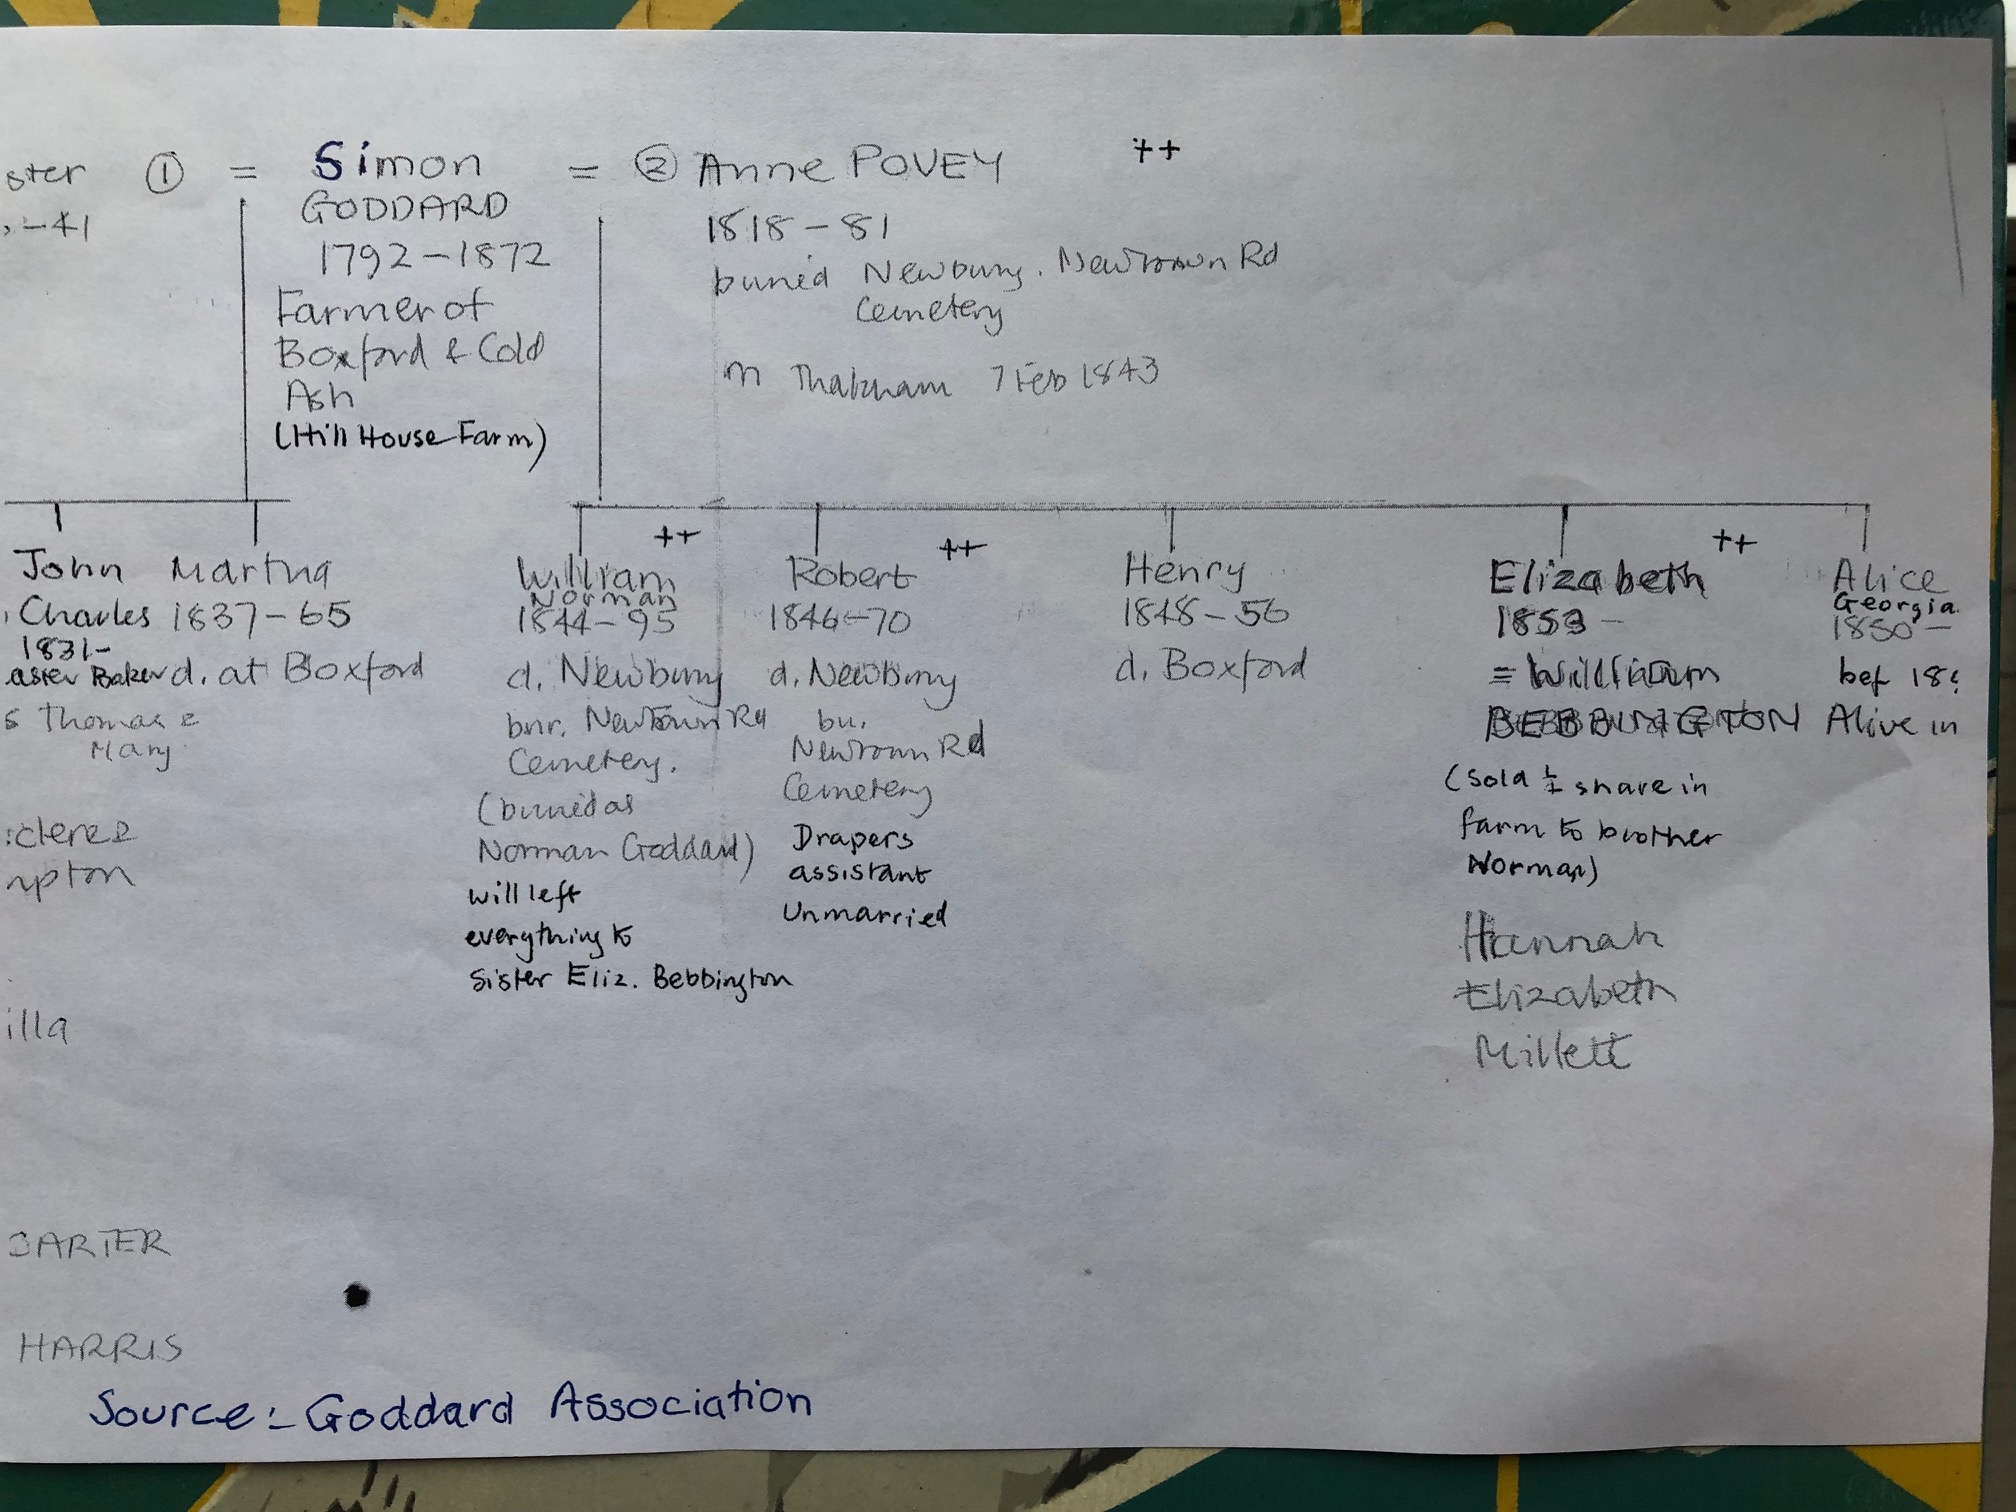 ster ① = Simon = ② Anne POVEY ++
-41 GODDARD 1818-81
1792-1872 buried Newbury. Newtown Rd
Farmer of Cemetery
Boxford & Cold
Ash m Thatcham 7 Feb 1843
(Hill House Farm)
++ ++ ++
John Martha William Robert Henry Elizabeth Alice
Norman Georgia
Charles 1837-65 1844-95 1846-70 1848-56 1853- 1850-
1831-
aster Baker d. at Boxford d. Newbury d. Newbury d. Boxford = William bef 18
s Thomas & bur. Newtown Rd bu. BEBBINGTON Alive in
Mary Cemetery. Newtown Rd
(buried as Cemetery (sold ½ share in
Norman Goddard) Drapers farm to brother
will left assistant Norman)
everything to Unmarried Hannah
sister Eliz. Bebbington Elizabeth
Millett
clere
mpton
illa
BARTER
HARRIS
Source:- Goddard Association